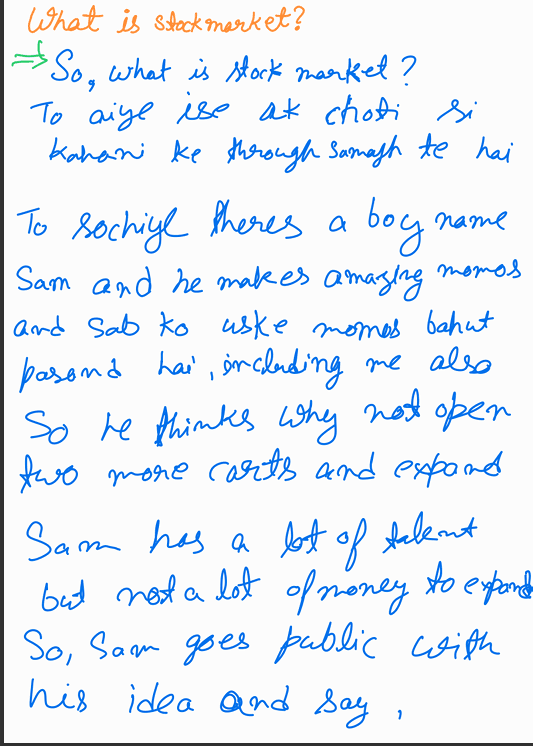 What is stock market?
So, what is stock market?
To aiye ise ak choti si
kahani ke through Samajh te hai
To sochiye theres a boy name
Sam and he makes amazing momos
and Sab ko uske momos bahut
pasand hai, including me also
So he thinks why not open
two more carts and expand
Sam has a lot of talent
but not a lot of money to expand
So, Sam goes public with
his idea and say,